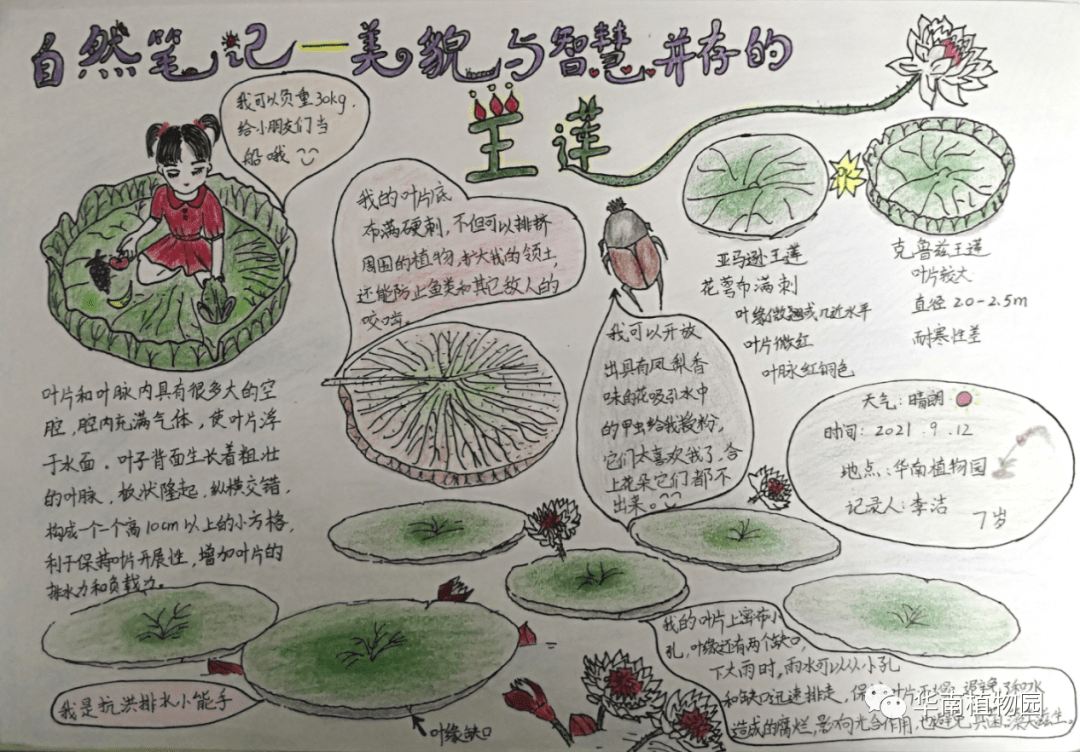 自然笔记—美貌与智慧并存的
王莲
我可以负重30kg,
给小朋友们当
船哦
我的叶片底
布满硬刺,不但可以排挤
周围的植物,扩大我的领土,
还能防止鱼类和其它敌人的
咬啮。
PK
亚马逊王莲
花萼布满刺
叶缘微翘或几近水平
叶片微红
叶脉红铜色
克鲁兹王莲
叶片较大
直径2.0-2.5m
耐寒性差
我可以开放
出具有凤梨香
味的花吸引水中
的甲虫给我授粉,
它们太喜欢我了,合
上花朵它们都不
出来。
天气:晴朗
时间:2021.9.12
地点:华南植物园
记录人:李洁
7岁
叶片和叶脉内具有很多大的空
腔,腔内充满气体,使叶片浮
于水面。叶子背面生长着粗壮
的叶脉,板状隆起,纵横交错,
构成一个一个高10cm以上的小方格,
利于保持叶片开展性,增加叶片的
排水力和负载力。
我是抗洪排水小能手
叶缘缺口
我的叶片上密布小
孔,叶缘还有两个缺口,
下大雨时,雨水可以从小孔
和缺口迅速排走,保
造成的腐烂,影响光合作用,也避免
华南植物园